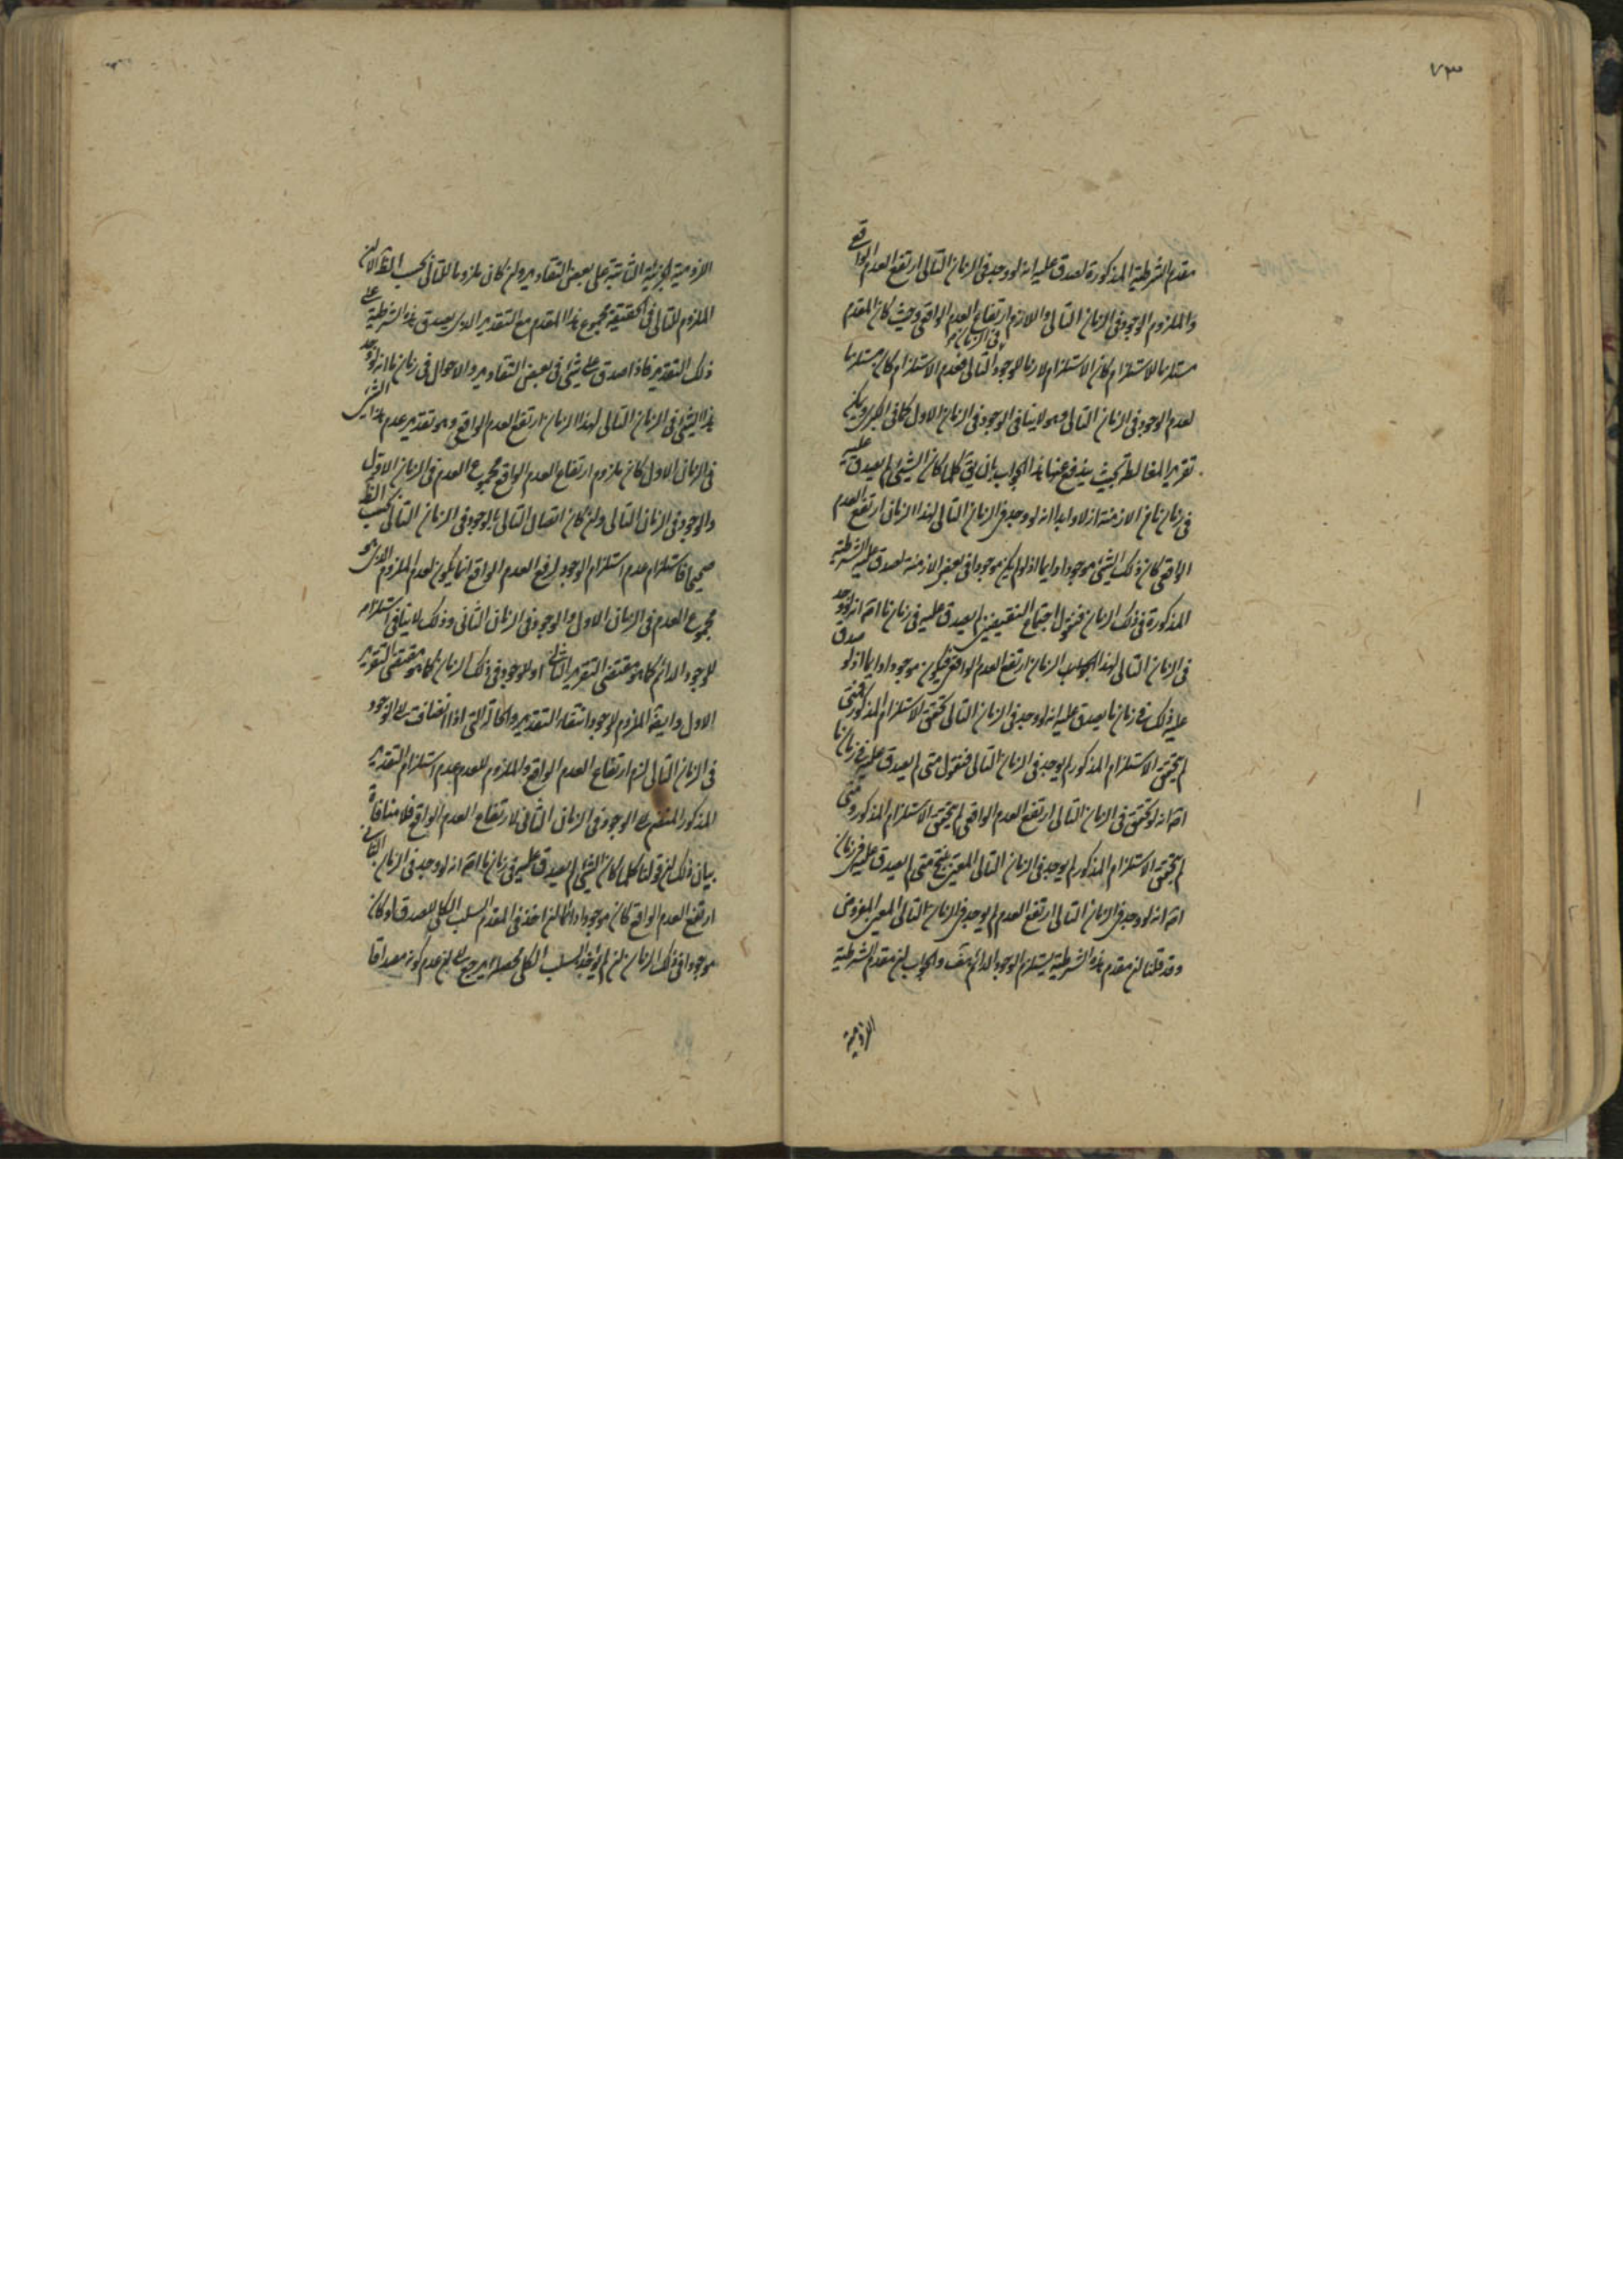 ٧٣
مقدم الشرطية المذكورة لصدق عليه انه لو وجد فى الزمان التالى ارتفع العدم الواقع
والملزوم الوجود فى الزمان التالى واللازم ارتفاع العدم الواقعى وحيث كان المقدم
مستلزما للاستلزام كان الاستلزام لازما للوجود فى الزمان التالى فعدم الاستلزام كان مستلزما
لعدم الوجود فى الزمان التالى وهو لا ينافى الوجود فى الزمان الاول كما فى ويمكن
تقرير المغالطة بحيث يندفع عنها هذا الجواب بان يق كلما كان الشيئ لم يصدق عليه
فى زمان ما من الازمنة ازلا وابدا انه لو وجد فى الزمان التالى لهذا الزمان ارتفع العدم
الواقعى كان ذلك الشيئ موجودا دايما اذ لو لم يكن موجودا فى بعض الازمنة لصدق عليه الشرطية
المذكورة فى ذلك الزمان فنقول اجتماع النقيضين لم يصدق عليه فى زمان ما انه لو وجد
فى الزمان التالى لهذا الزمان ارتفع العدم الواقعى فيكون موجودا دايما اذ لو صدق
عليه ذلك فى زمان ما يصدق عليه انه لو وجد فى الزمان التالى تحقق الاستلزام المذكور فمتى
لم يتحقق الاستلزام المذكور لم يوجد فى الزمان التالى فنقول متى لم يصدق عليه فى زمان ما
انه لو تحقق فى الزمان التالى ارتفع العدم الواقعى لم يتحقق الاستلزام المذكور ومتى
لم يتحقق الاستلزام المذكور لم يوجد فى الزمان التالى المعين ينتج متى لم يصدق عليه فى زمان
انه لو وجد فى الزمان التالى ارتفع العدم لم يوجد فى الزمان التالى المعين المفروض
وقد قلنا ان مقدم هذه الشرطية يستلزم الوجود الدائم هف والجواب ان مقدم الشرطية
اللزومية
اللزومية الجزئية الثابتة على بعض التقادير وان كان ملزوما للتالى بحسب الظ الا ان
الملزوم للتالى فى الحقيقة مجموع هذا المقدم مع التقدير الذى يصدق هذه الشرطية على
ذلك التقدير فاذا صدق على شئ فى بعض التقادير والاحوال فى زمان ما انه لو وجد
هذا الشيئ فى الزمان التالى لهذا الزمان ارتفع العدم الواقعى وهو تقدير عدم هذا الشئ
فى الزمان الاول كان ملزوم ارتفاع العدم الواقع مجموع العدم فى الزمان الاول
والوجود فى الزمان التالى وان كان اتصال التالى بالوجود فى الزمان التالى بحسب الظ
صحيحا فاستلزام عدم استلزام الوجود لرفع العدم الواقع انما يكون لعدم الملزوم الذى هو
مجموع العدم فى الزمان الاول والوجود فى الزمان الثانى وذلك لا ينافى استلزامه
للوجود الدائم كما هو مقتضى التقرير الثانى او للوجود فى ذلك الزمان كما هو مقتضى التقرير
الاول وايضا الملزوم للوجود انتفاء التقدير والحالة التى اذا انضافت الى الوجود
فى الزمان التالى لزم ارتفاع العدم الواقع والملزوم للعدم عدم استلزام التقدير
المذكور المنضم الى الوجود فى الزمان الثانى لارتفاع العدم الواقع فلا منافاة
بيان ذلك ان قولنا كلما كان الشيئ لم يصدق عليه فى زمان ما انه لو وجد فى الزمان التالى
ارتفع العدم الواقع كان موجودا دائما ان اخذ فى المقدم السلب الكلى لصدق او كان
موجودا فى ذلك الزمان ان لم يؤخذ السلب الكلى محصله يرجع الى ان عدم كونه مصداقا